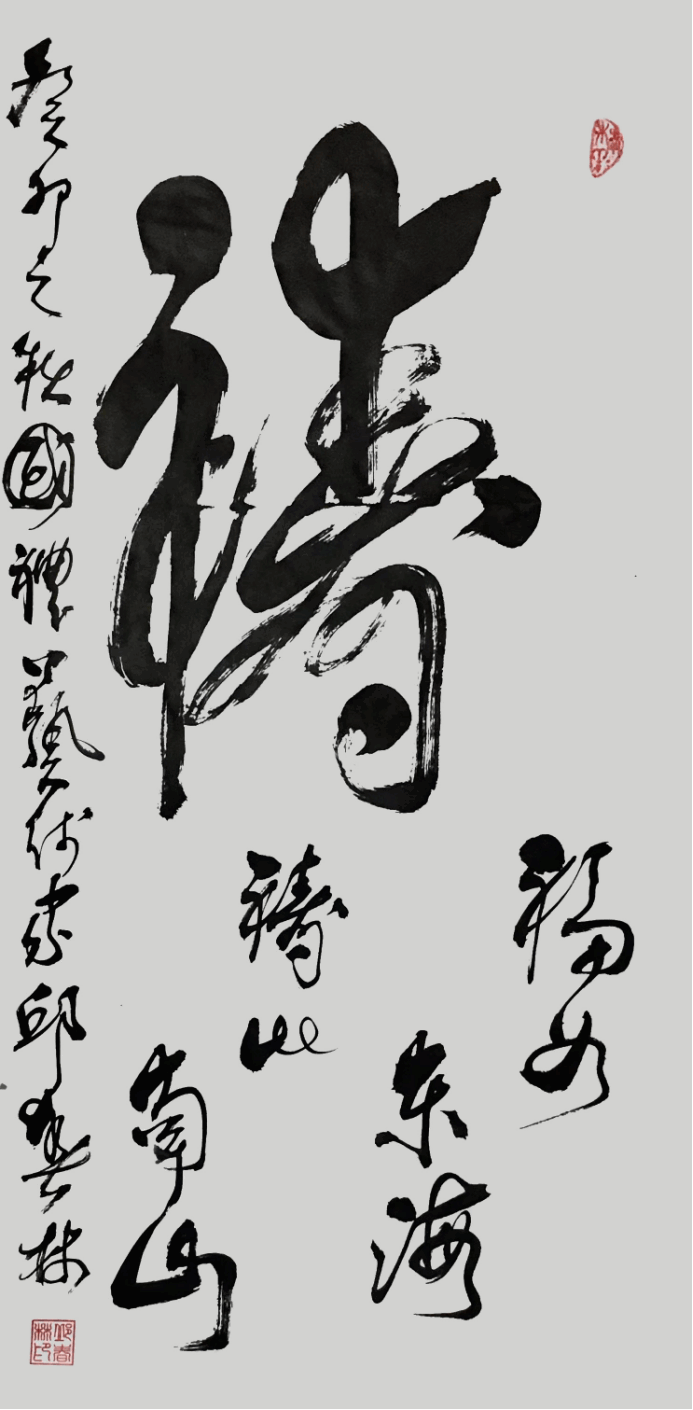 禱
福如
东海
禱比
南山
癸卯之秋國禮艺術家邱春林
邱春林印